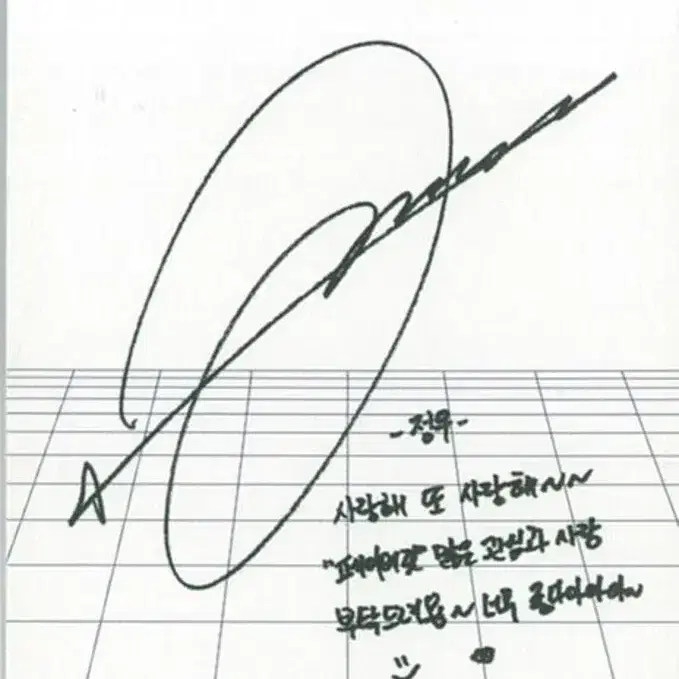 -정우-
사랑해 또 사랑해~~
"페이버릿" 많은 관심과 사랑
부탁드려용~ 너무 좋다아아아~